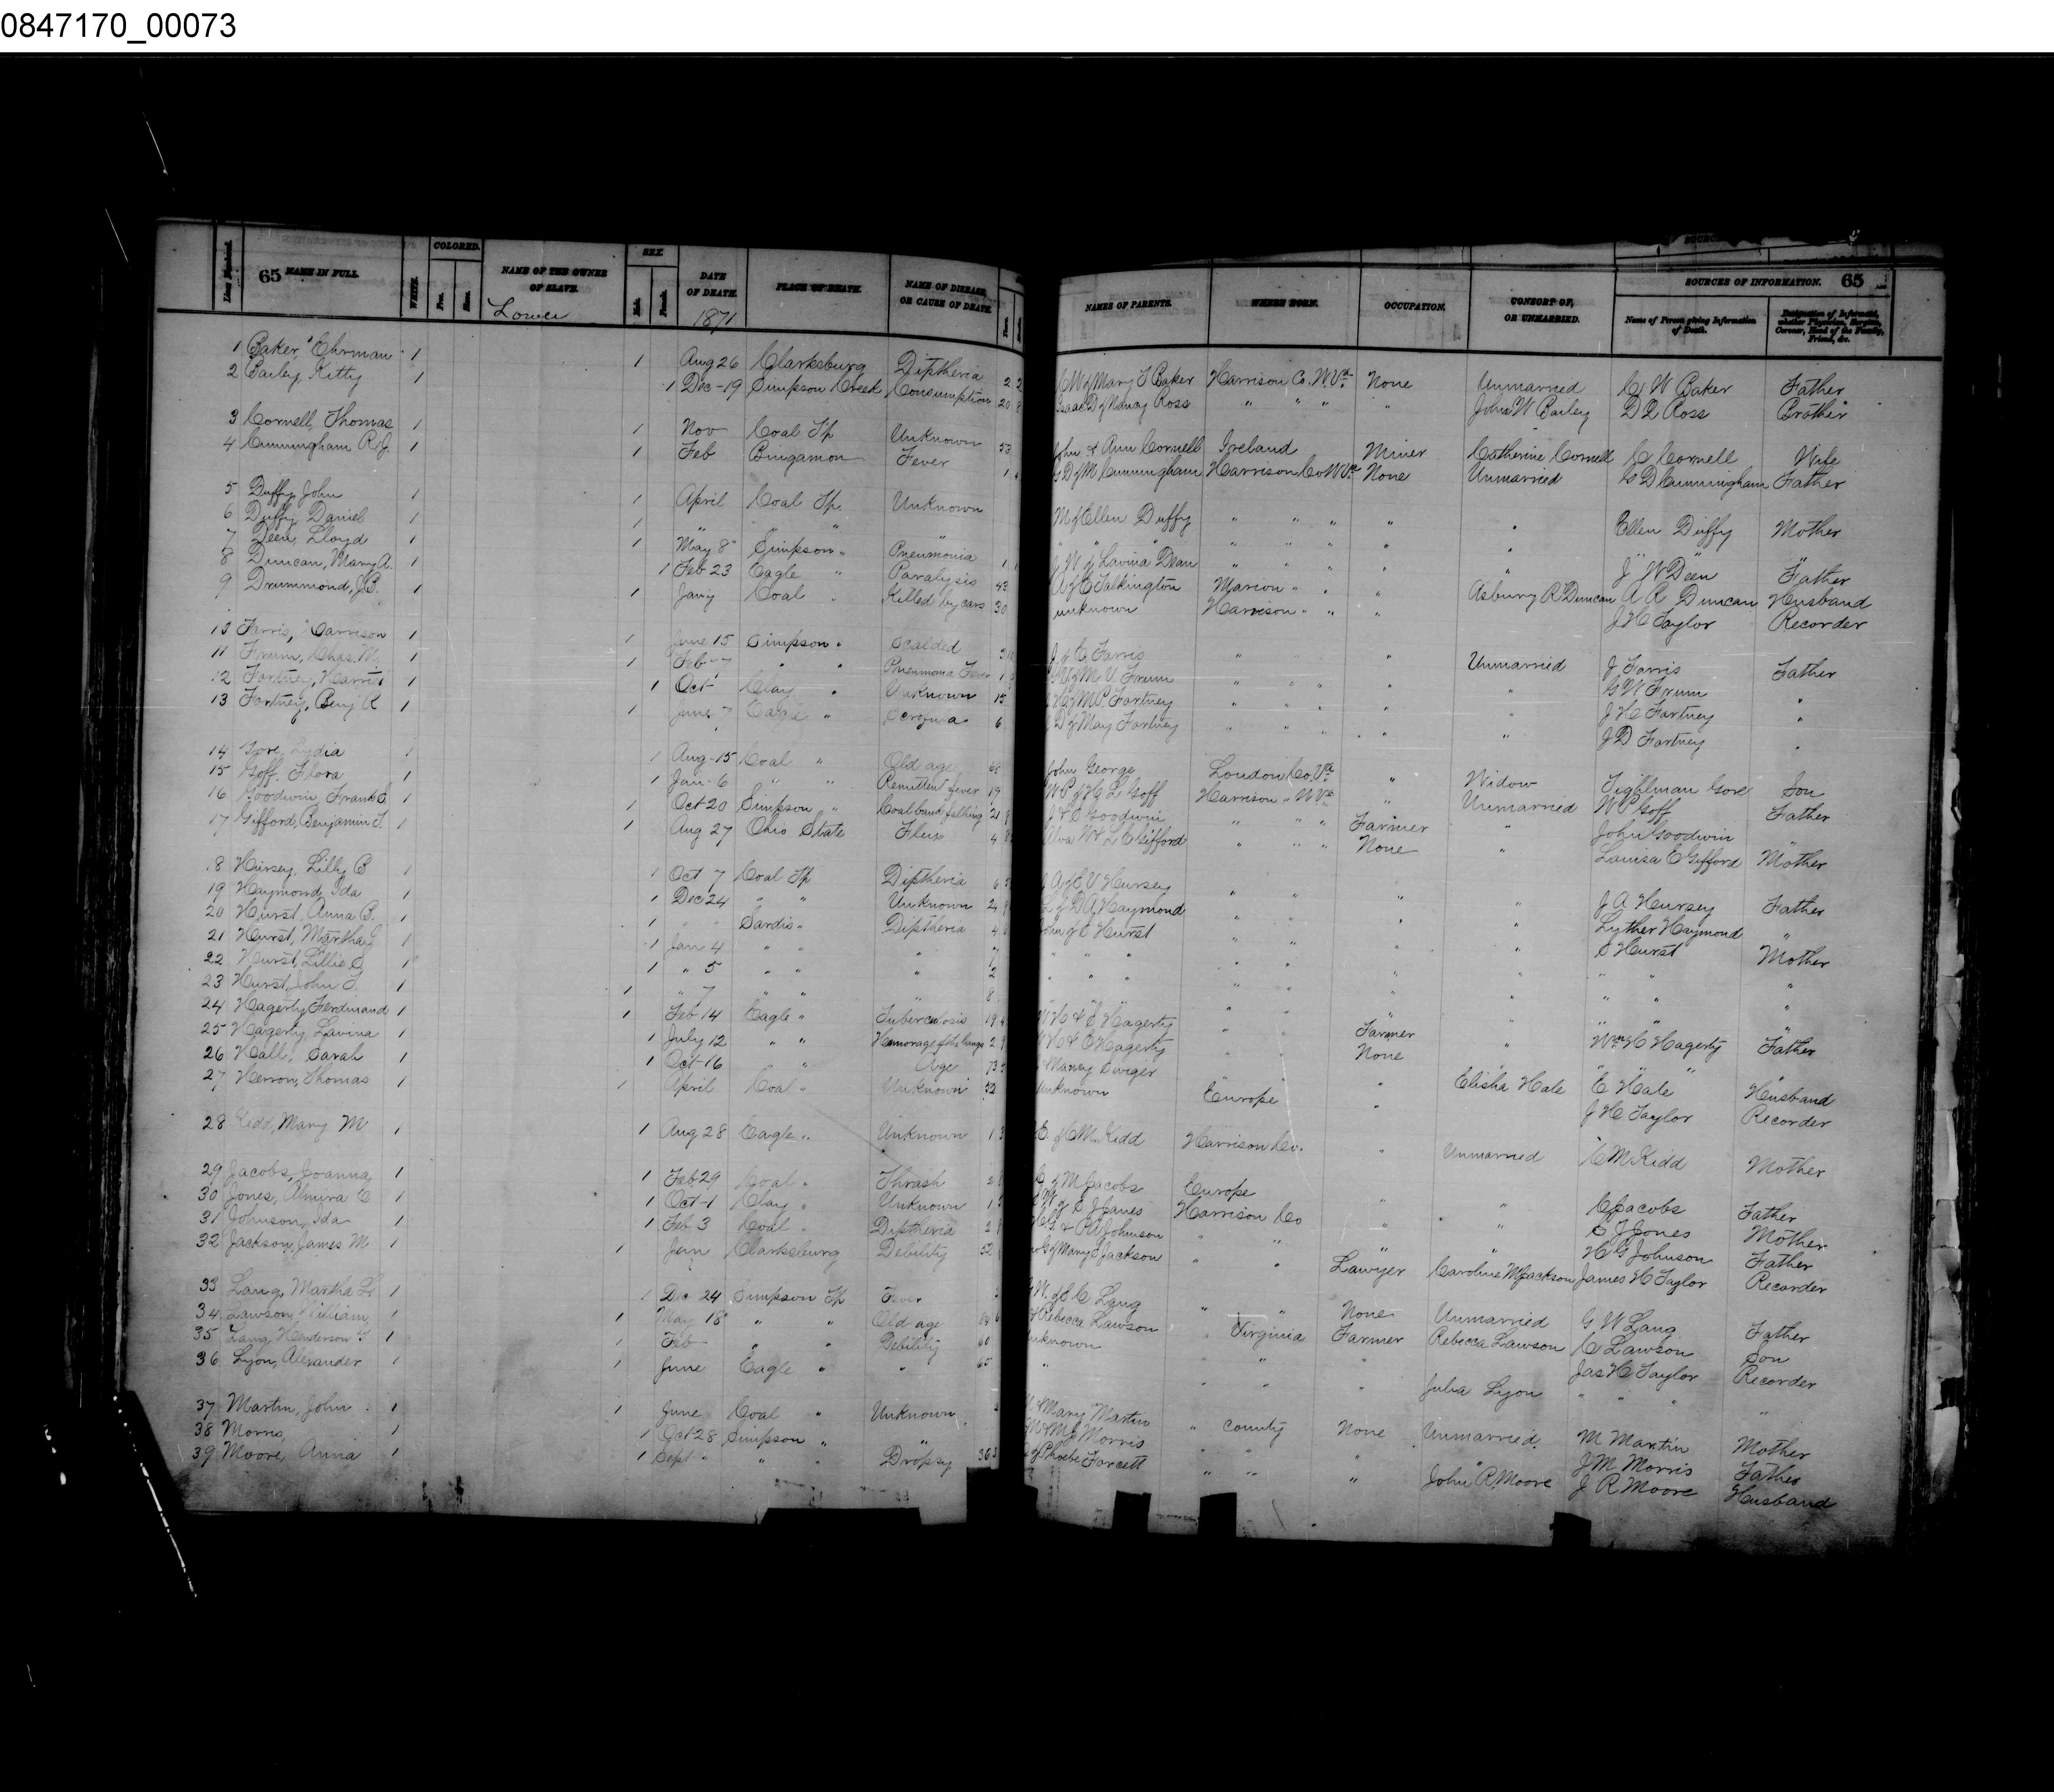 0847170_00073
65 NAME IN FULL. WHITE. COLORED. Free. Slave. NAME OF THE OWNER OF SLAVE. SEX. Male. Female. DATE OF DEATH. PLACE OF DEATH. NAME OF DISEASE, OR CAUSE OF DEATH. NAMES OF PARENTS. WHERE BORN. OCCUPATION. CONSORT OF, OR UNMARRIED. SOURCES OF INFORMATION. 65
Name of Person giving Information of Death. Designation of Informant, whether Physician, Surgeon, Coroner, Head of the Family, Friend, &c.
Lower 1871
1 Baker, Ehrman 1 1 Aug 26 Clarksburg Diptheria 2 Mary Baker Harrison Co. W.Va. None Unmarried C W Baker Father
2 Bailey, Kitty 1 1 Dec-19 Simpson Creek Consumption 20 Isaac D & Nancy Ross " " " " John W Bailey D D Ross Brother
3 Cornell, Thomas 1 1 Nov Coal Tp Unknown 53 John & Ann Cornell Ireland Miner Catherine Cornell C Cornell Wife
4 Cunningham R.J. 1 1 Feb Bingamon Fever 1 Cunningham Harrison Co W Va None Unmarried G D Cunningham Father
5 Duffy, John 1 1 April Coal Tp. Unknown M & Ellen Duffy " " " " " Ellen Duffy Mother
6 Duffy, Daniel 1 1 " " " " " " " " " " " " "
7 Deen, Lloyd 1 1 May 8 Simpson " Pneumonia 1 J W & Lavina Dean " " " " " J W Deen Father
8 Duncan, Mary A. 1 1 Feb 23 Eagle " Paralysis 43 Talkington Marion " " " Asbury R Duncan A R Duncan Husband
9 Drummond, J.B. 1 1 Jany Coal " Killed by cars 30 unknown Harrison " " " J H Taylor Recorder
10 Farris, Harrison 1 1 June 15 Simpson " Scalded J & C Farris " " " Unmarried J Farris Father
11 Frum, Chas. M. 1 1 Feb-7 " " Pneumonia Fever 1 M V Frum " " " " " G W Frum "
12 Fortney, Harriet 1 1 Oct Clay " Unknown 15 Fortney " " " " " J H Fortney "
13 Fortney, Benj R 1 1 June 7 Eagle " Scrofula 6 D & May Fortney " " " " " J D Fortney "
14 Gore, Lydia 1 1 Aug-15 Coal " Old age 68 John George Loudon Co. Va " Widow Tighlman Gore Son
15 Goff, Flora 1 1 Jan-6 " " Remittent fever 19 Goff Harrison " W Va " Unmarried W P Goff Father
16 Goodwin, Frank S 1 1 Oct 20 Simpson " Coal bank falling 21 Goodwin " " " Farmer " John Goodwin "
17 Gifford, Benjamin F. 1 1 Aug 27 Ohio State Flux 4 Gifford " " " None " Louisa E Gifford Mother
18 Hursey, Lilly B 1 1 Oct 7 Coal Tp Diptheria 6 Hursey " " " " J A Hursey Father
19 Haymond, Ida 1 1 Dec 24 " " Unknown 2 Haymond " " " " Lyther Haymond "
20 Hurst, Anna B. 1 1 Sardis " Diptheria 4 John & E Hurst " " " " E Hurst Mother
21 Hurst, Martha J 1 1 Jan 4 " " " 7 " " " " " " " " " "
22 Hurst, Lillie C 1 1 " 5 " " " 2 " " " " " " " " " "
23 Hurst, John T. 1 1 " 7 " " " 8 " " " " " " " " " "
24 Hagerty, Ferdinand 1 1 Feb 14 Eagle " Tuberculosis 19 Hagerty " " Farmer " Wm H Hagerty Father
25 Hagerty, Lavina 1 1 July 12 " " Hemorage of the lungs 2 Hagerty " " None " " " " "
26 Hall, Sarah 1 1 Oct-16 " " Age 73 Nancy Swiger " " " Elisha Hale E Hale Husband
27 Herron, Thomas 1 1 April Coal " Unknown 52 Unknown Europe " J H Taylor Recorder
28 Kidd, Mary M 1 1 Aug 28 Eagle " Unknown 1 Kidd Harrison Co. " Unmarried C M Kidd Mother
29 Jacobs, Joanna 1 1 Feb 29 Coal " Thrash C & M Jacobs Europe " " C Jacobs Father
30 Jones, Almira E 1 1 Oct-1 Clay " Unknown 1 E J Jones Harrison Co " " E J Jones Mother
31 Johnson, Ida 1 1 Feb 3 Coal " Diptheria 2 Johnson " " " " H G Johnson Father
32 Jackson, James M 1 1 Jun Clarksburg Debility 52 Mary Jackson " " Lawyer Caroline M Jackson James H Taylor Recorder
33 Lang, Martha 1 1 Dec 24 Simpson Tp Fever Lang " " None Unmarried G W Lang Father
34 Lawson, William 1 1 May 18 " " Old age 84 Rebecca Lawson " Virginia Farmer Rebecca Lawson C Lawson Son
35 Lang, Henderson 1 1 Feb " " Debility 60 Unknown " " " Jas H Taylor Recorder
36 Lyon, Alexander 1 1 June Eagle " " 65 " " " " Julia Lyon " " " "
37 Martin, John 1 1 June Coal " Unknown Mary Martin " County None Unmarried M Martin Mother
38 Morris, 1 1 Oct 28 Simpson " " Morris " " " " J M Morris Father
39 Moore, Anna 1 1 Sept " " " Dropsy 36 Phoebe Forcett " " " John R. Moore J R Moore Husband